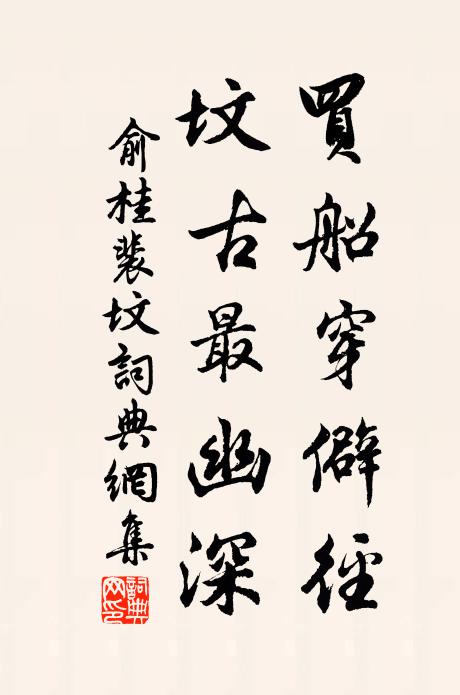 買船穿僻徑
坟古最幽深
俞桂裴坟詞典網集
詞典网印